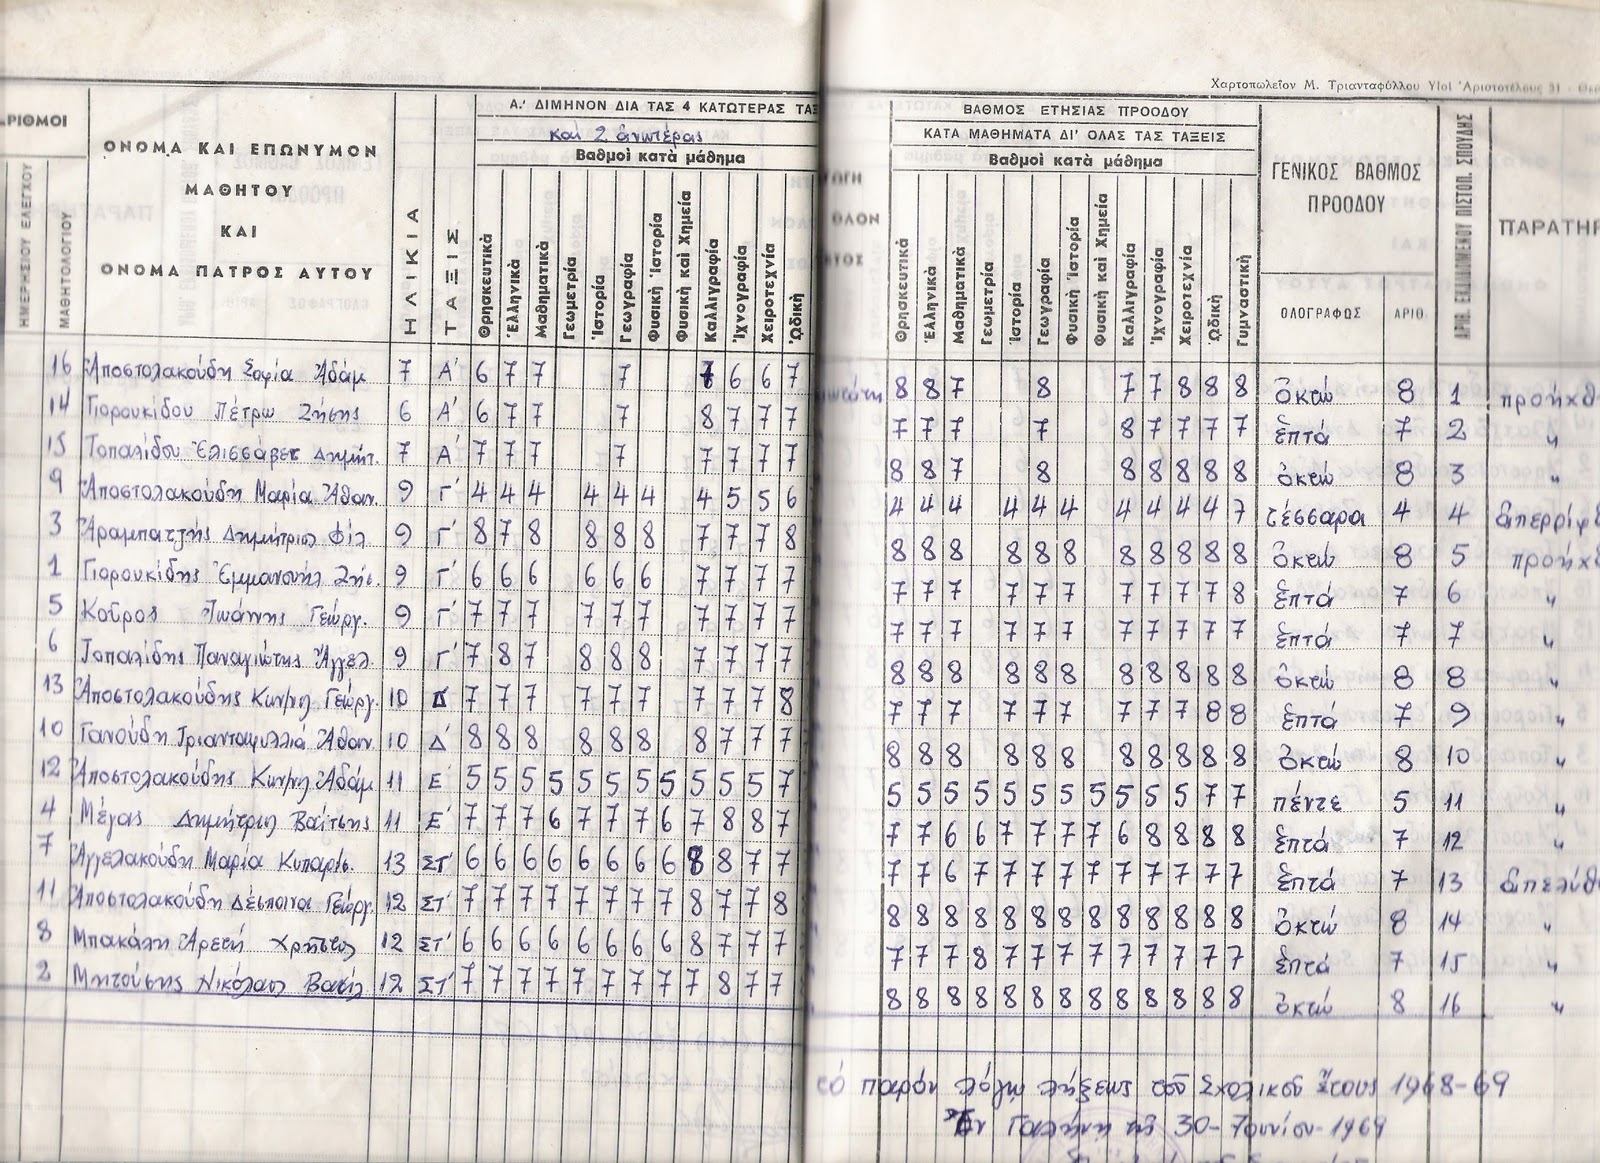 Χαρτοπωλεῖον Μ. Τριανταφύλλου Υἱοὶ Ἀριστοτέλους 31 - Θεσ
ΡΙΘΜΟΙ
ΗΜΕΡΗΣΙΟΥ ΕΛΕΓΧΟΥ
ΜΑΘΗΤΟΛΟΓΙΟΥ
ΟΝΟΜΑ ΚΑΙ ΕΠΩΝΥΜΟΝ
ΜΑΘΗΤΟΥ
ΚΑΙ
ΟΝΟΜΑ ΠΑΤΡΟΣ ΑΥΤΟΥ
ΗΛΙΚΙΑ
ΤΑΞΙΣ
Α.' ΔΙΜΗΝΟΝ ΔΙΑ ΤΑΣ 4 ΚΑΤΩΤΕΡΑΣ ΤΑΞ
καί 2 ἀνωτέρας
Βαθμοὶ κατὰ μάθημα
Θρησκευτικά Ἑλληνικά Μαθηματικά Γεωμετρία Ἱστορία Γεωγραφία Φυσικὴ Ἱστορία Φυσικὴ καὶ Χημεία Καλλιγραφία Ἰχνογραφία Χειροτεχνία Ὠδική
ΒΑΘΜΟΣ ΕΤΗΣΙΑΣ ΠΡΟΟΔΟΥ
ΚΑΤΑ ΜΑΘΗΜΑΤΑ ΔΙ' ΟΛΑΣ ΤΑΣ ΤΑΞΕΙΣ
Βαθμοὶ κατὰ μάθημα
Θρησκευτικά Ἑλληνικά Μαθηματικά Γεωμετρία Ἱστορία Γεωγραφία Φυσικὴ Ἱστορία Φυσικὴ καὶ Χημεία Καλλιγραφία Ἰχνογραφία Χειροτεχνία Ὠδική Γυμναστική
ΓΕΝΙΚΟΣ ΒΑΘΜΟΣ
ΠΡΟΟΔΟΥ
ΟΛΟΓΡΑΦΩΣ ΑΡΙΘ.
ΑΡΙΘ. ΕΚΔΙΔΟΜΕΝΟΥ ΠΙΣΤΟΠ. ΣΠΟΥΔΗΣ
ΠΑΡΑΤΗΡ
16 Ἀποστολακούδη Σοφία Ἀδάμ 7 Α' 6 7 7 7 7 6 6 7 8 8 7 8 7 7 8 8 8 ὀκτώ 8 1 προήχθ
14 Γιορουκίδου Πέτρω Ζήσης 6 Α' 6 7 7 7 8 7 7 7 7 7 7 7 8 7 7 7 7 ἑπτά 7 2 〃
15 Τοπαλίδου Ἐλισσάβετ Δημήτ. 7 Α' 7 7 7 7 7 7 7 7 8 8 7 8 8 8 8 8 8 ὀκτώ 8 3 〃
9 Ἀποστολακούδη Μαρία Ἀθαν. 9 Γ' 4 4 4 4 4 4 4 5 5 6 4 4 4 4 4 4 4 4 4 4 7 τέσσαρα 4 4 ἀπερρίφ
3 Ἀραμπατζής Δημήτριος Φίλ 9 Γ' 8 7 8 8 8 8 7 7 7 8 8 8 8 8 8 8 8 8 8 8 8 ὀκτώ 8 5 προήχθ
1 Γιορουκίδης Ἐμμανουήλ Ζήσ. 9 Γ' 6 6 6 6 6 6 7 7 7 7 7 7 7 7 7 7 7 7 7 7 8 ἑπτά 7 6 〃
5 Κοῦρος Ἰωάννης Γεώργ. 9 Γ' 7 7 7 7 7 7 7 7 7 7 7 7 7 7 7 7 7 7 7 7 7 ἑπτά 7 7 〃
6 Τοπαλίδης Παναγιώτης Ἀγγελ. 9 Γ' 7 8 7 8 8 8 7 7 7 7 8 8 8 8 8 8 8 8 8 8 8 ὀκτώ 8 8 〃
13 Ἀποστολακούδης Κων/νος Γεώργ. 10 Δ 7 7 7 7 7 7 7 7 7 8 7 7 7 7 7 7 7 7 7 8 8 ἑπτά 7 9 〃
10 Γανούδη Τριανταφυλλιά Ἀθαν. 10 Δ' 8 8 8 8 8 8 8 7 7 7 8 8 8 8 8 8 8 8 8 8 8 ὀκτώ 8 10 〃
12 Ἀποστολακούδης Κων/νος Ἀδάμ 11 Ε' 5 5 5 5 5 5 5 5 5 5 5 7 5 5 5 5 5 5 5 5 5 5 5 7 7 πέντε 5 11 〃
4 Μέγας Δημήτριος Βαΐτσης 11 Ε' 7 7 7 6 7 7 7 6 7 8 8 7 7 7 6 6 7 7 7 7 6 8 8 8 8 ἑπτά 7 12 〃
7 Ἀγγελακούδη Μαρία Κυπαρίσ. 13 ΣΤ' 6 6 6 6 6 6 6 6 8 8 7 7 7 7 6 7 7 7 7 7 7 7 7 7 7 ἑπτά 7 13 ἀπελύθ
11 Ἀποστολακούδη Δέσποινα Γεώργ. 12 ΣΤ' 7 7 7 7 7 7 7 7 8 7 7 8 8 8 8 8 8 8 8 8 8 8 8 8 8 ὀκτώ 8 14 〃
8 Μπακάλη Ἀρετή Χρῆστος 12 ΣΤ' 6 6 6 6 6 6 6 6 8 7 7 7 7 7 7 8 7 7 7 7 7 7 7 7 7 ἑπτά 7 15 〃
2 Μητούσης Νικόλαος Βασίλ 12 ΣΤ' 7 7 7 7 7 7 7 7 7 8 7 7 8 8 8 8 8 8 8 8 8 8 8 8 8 ὀκτώ 8 16 〃
τό παρόν λόγῳ λήξεως τοῦ Σχολικοῦ ἔτους 1968-69
Ἐν Γαλήνη τῇ 30-Ἰουνίου-1969